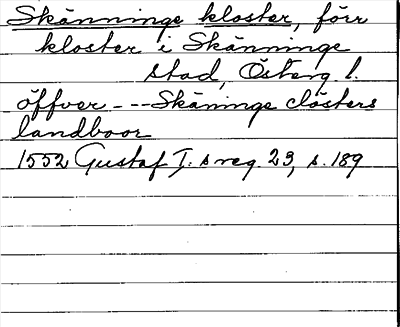 Skänninge kloster, förr
kloster i Skänninge
stad, Österg. l.
öffver --- Skäninge clösters
landboor
1552 Gustaf I:s reg. 23, s. 189